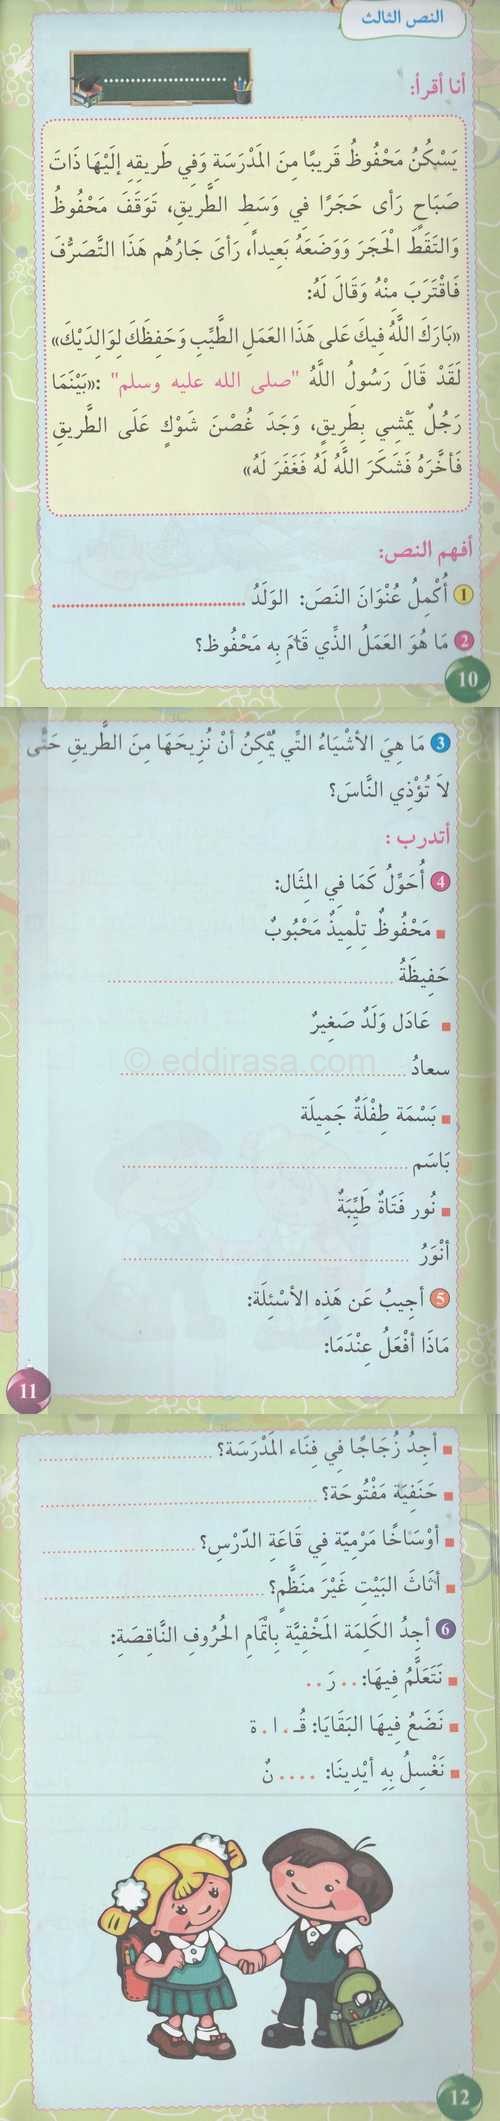 النص الثالث
أنا أقرأ:
..........................
يَسْكُنُ مَحْفُوظُ قَرِيبًا مِنَ المَدْرَسَةِ وَفِي طَرِيقِهِ إلَيْهَا ذَاتَ
صَبَاحٍ رَأى حَجَرًا فِي وَسَطِ الطَّرِيقِ، تَوَقَفَ مَحْفُوظُ
وَالتَقَطَ الْحَجَرَ وَوَضَعَهُ بَعِيداً، رَأىَ جَارُهُم هَذَا التَّصَرُّفَ
فَاقْتَرَبَ مِنْهُ وَقَالَ لَهُ:
«بَارَكَ اللَّهُ فِيكَ عَلى هَذَا العَمَلِ الطَّيِّبِ وَحَفِظَكَ لِوَالِدَيْكَ»
لَقَدْ قَالَ رَسُولُ اللَّهُ "صلى الله عليه وسلم" :«بَيْنَمَا
رَجُلٌ يَمْشِي بِطَرِيقٍ، وَجَدَ غُصْنَ شَوْكٍ عَلَى الطَّرِيقِ
فَأخَّرَهُ فَشَكَرَ اللَّهُ لَهُ فَغَفَرَ لَهُ»
أفهم النص:
1 أُكْمِلُ عُنْوَانَ النَصَ: الوَلَدُ ..........................
2 مَا هُوَ العَمَلُ الذَّي قَامَ بِه مَحْفُوظ؟
10
3 مَا هِيَ الأشْيَاءُ التَّي يُمْكِنُ أنْ نُزِيحَهَا مِنَ الطَّرِيقِ حَتَّى
لاَ تُؤْذِي النَّاسَ؟
أتدرب :
4 أُحَوِّلُ كَمَا فِي المِثَال:
مَحْفُوظٌ تِلْمِيذٌ مَحْبُوبٌ
حَفِيظَةُ ..........................
عَادَل وَلَدٌ صَغِيرٌ
© eddirasa.com
سعادُ ..........................
بَسْمَة طِفْلَةٌ جَمِيلَة
بَاسَم ..........................
نُور فَتَاةٌ طَيِّبَةٌ
أنْوَرُ ..........................
5 أجِيبُ عَن هَذِه الأسْئِلَة:
مَاذَا أفْعَلُ عِنْدَمَا:
11
أجِدُ زُجَاجًا فِي فِنَاء المَدْرَسَة؟ ..........................
حَنَفِيَة مَفْتُوحَة؟ ..........................
أوْسَاخًا مَرْمِيّة فِي قَاعَةِ الدّرْسِ؟ ..........................
أثَاثَ البَيْتِ غَيْرَ منَظَّمٍ؟ ..........................
6 أجِدُ الكَلِمَة المَخْفِيَّة بِاتْمَامِ الحُرُوفِ النَّاقِصَةِ:
نَتَعَلَّمُ فِيهَا: . . رَ . .
نَضَعُ فِيهَا البَقَايَا: قُـ . ا . ة
نَغْسِلُ بِهِ أيْدِينَا: . . . . نٌ
12